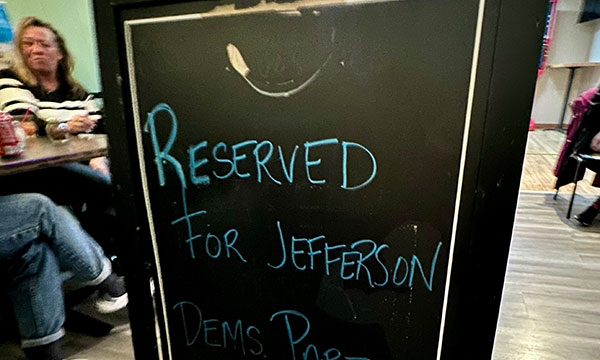 RESERVED
FOR JEFFERSON
DEMS. PAR-